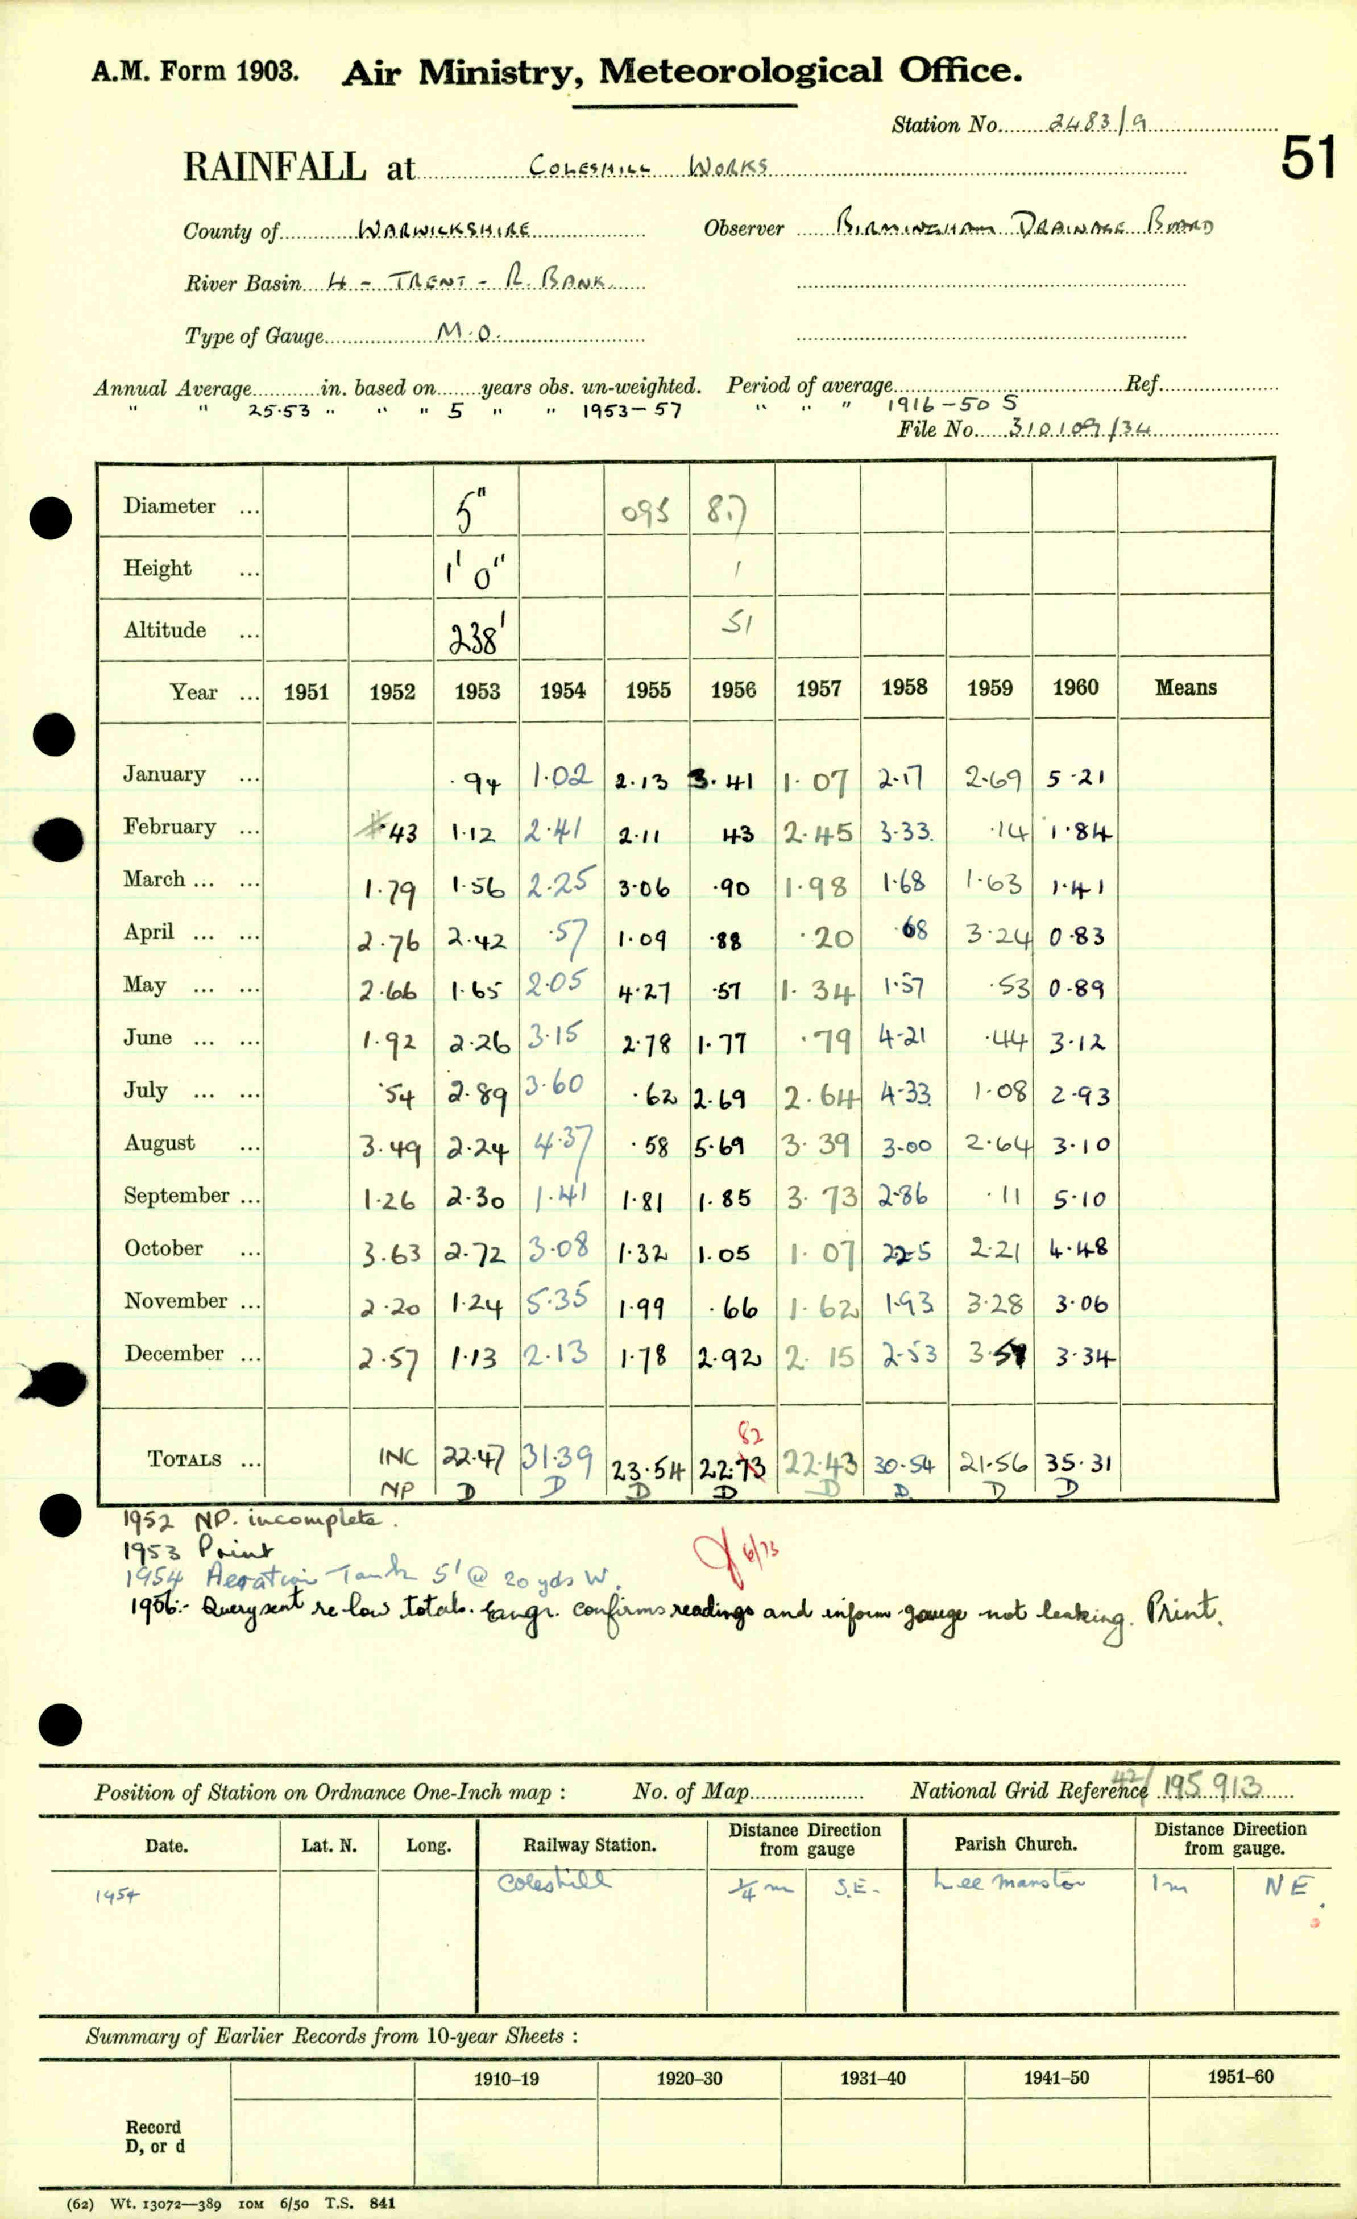 A.M. Form 1903. Air Ministry, Meteorological Office.
Station No. 2483/9
51
RAINFALL at COLESHILL WORKS
County of WARWICKSHIRE Observer BIRMINGHAM DRAINAGE BOARD
River Basin 4 - TRENT - R. BANK
Type of Gauge M.O.
Annual Average in. based on years obs. un-weighted. Period of average Ref.
" " 25.53 " " " 5 " " 1953-57 " " " 1916-50 S
File No. 310109/34
Diameter ... 5" 095 87
Height ... 1' 0" 1
Altitude ... 238' 51
Year ... 1951 1952 1953 1954 1955 1956 1957 1958 1959 1960 Means
January ... .94 1.02 2.13 3.41 1.07 2.17 2.69 5.21
February ... .43 1.12 2.41 2.11 43 2.45 3.33 .14 1.84
March ... ... 1.79 1.56 2.25 3.06 .90 1.98 1.68 1.63 1.41
April ... ... 2.76 2.42 .57 1.09 .88 .20 .68 3.24 0.83
May ... ... 2.66 1.65 2.05 4.27 .57 1.34 1.57 .53 0.89
June ... ... 1.92 2.26 3.15 2.78 1.77 .79 4.21 .44 3.12
July ... ... .54 2.89 3.60 .62 2.69 2.64 4.33 1.08 2.93
August ... 3.49 2.24 4.37 .58 5.69 3.39 3.00 2.64 3.10
September ... 1.26 2.30 1.41 1.81 1.85 3.73 2.86 .11 5.10
October ... 3.63 2.72 3.08 1.32 1.05 1.07 2.25 2.21 4.48
November ... 2.20 1.24 5.35 1.99 .66 1.62 1.93 3.28 3.06
December ... 2.57 1.13 2.13 1.78 2.92 2.15 2.53 3.57 3.34
82
TOTALS ... INC 22.47 31.39 23.54 22.73 22.43 30.54 21.56 35.31
NP D D D D D D D D
1952 NP. incomplete.
1953 Print
6/73
1954 Aeration Tank 5' @ 20 yds W.
1956:- Query sent re low totals. Engr. confirms readings and inform gauge not leaking. Print.
Position of Station on Ordnance One-Inch map : No. of Map National Grid Reference 42/195913
Date. Lat. N. Long. Railway Station. Distance from gauge Direction Parish Church. Distance from gauge. Direction
1954 Coleshill ¼ m S.E. Lee Marston 1m NE.
Summary of Earlier Records from 10-year Sheets :
1910–19 1920–30 1931–40 1941–50 1951–60
Record
D, or d
(62) Wt. 13072—389 10M 6/50 T.S. 841